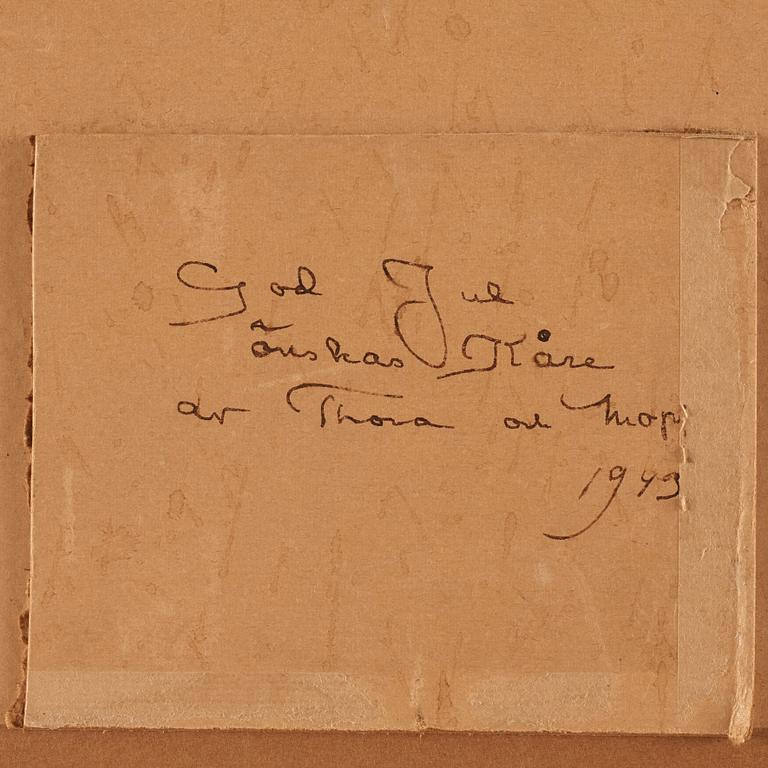 God Jul
önskas Kåre
av Thora och
1943